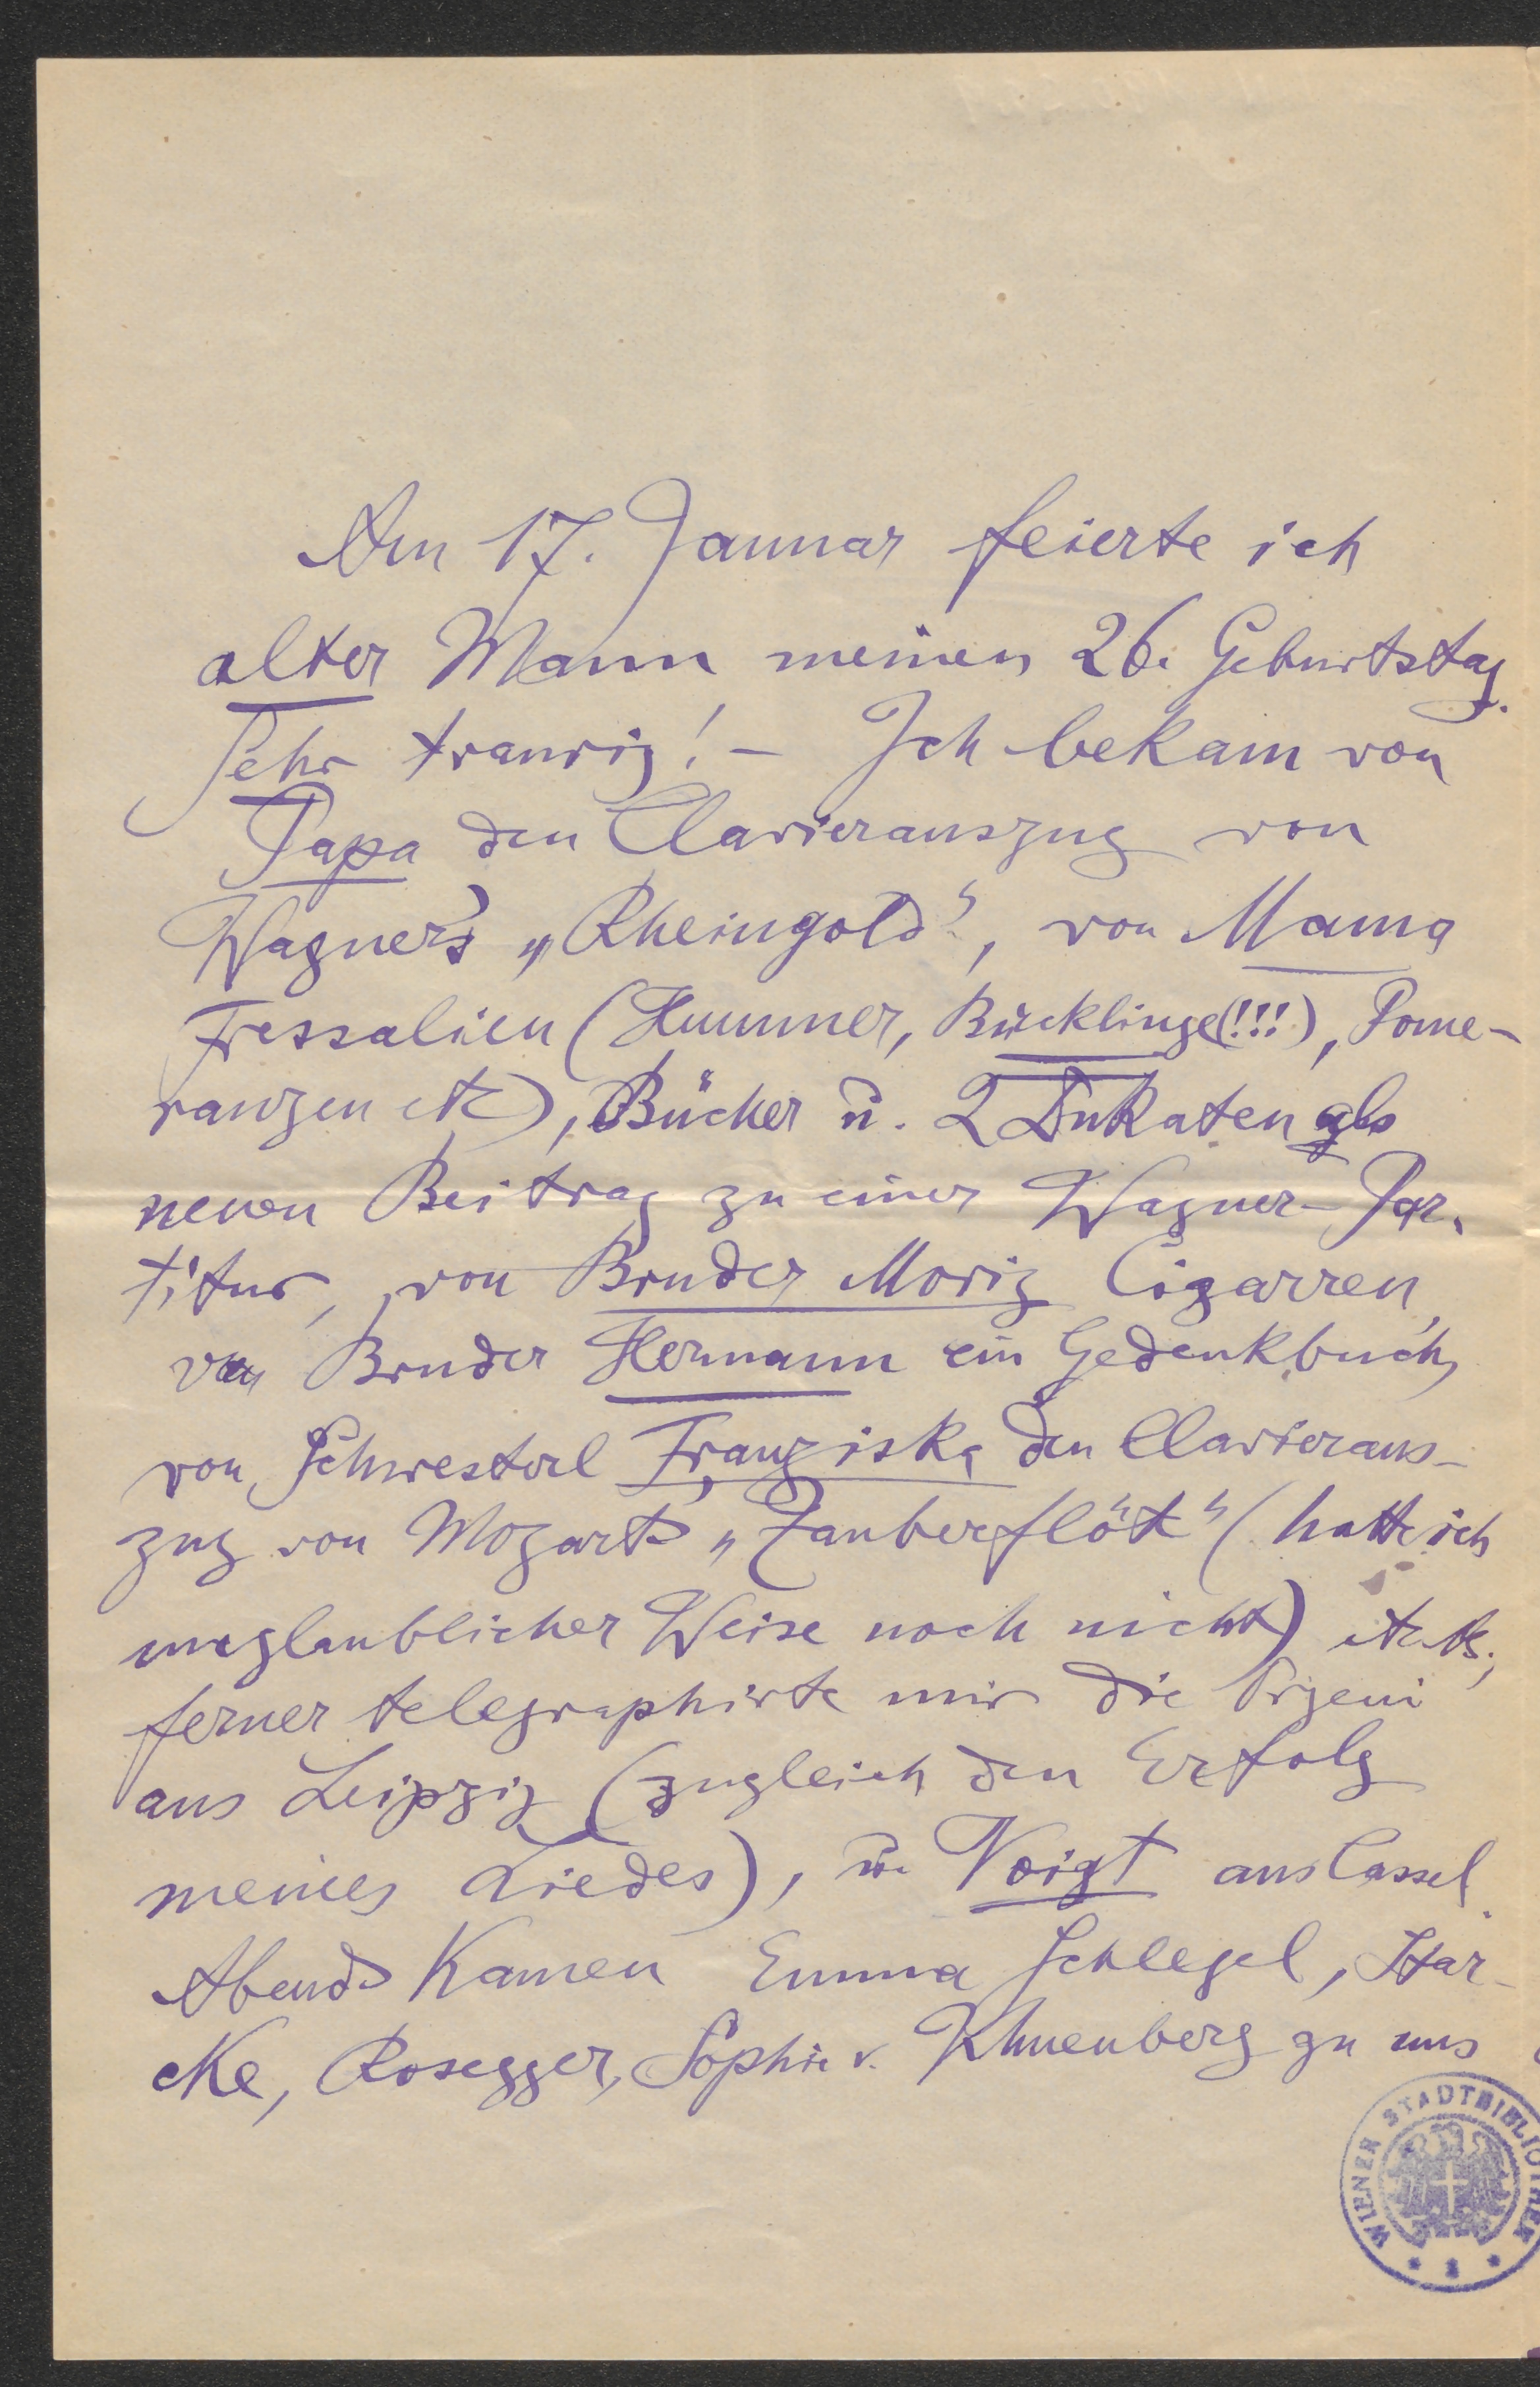 Am 17. Januar feierte ich
alter Mann meinen 26. Geburtstag.
Sehr traurig! – Ich bekam von
Papa den Clavierauszug von
Wagner's „Rheingold“, von Mama
Fressalien (Hummer, Bücklinge(!!!), Pome-
ranzen etc), Bücher u. 2 Dukaten als
neuen Beitrag zu einer Wagner-Par-
titur, von Bruder Moriz Cigarren,
von Bruder Hermann ein Gedenkbuch,
von Schwesterl Franziska den Clavieraus-
zug von Mozarts „Zauberflöte“ (hatte ich
unglaublicher Weise noch nicht) etc etc.,
ferner telegraphirte mir die
aus Leipzig (zugleich den Erfolg
meines Liedes), u. Voigt aus Cassel.
Abends kamen Emma Schlegel, Har-
cke, Rosegger, Sophie v. Khuenberg zu uns
WIENER STADTBIBLIOTHEK